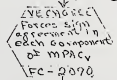 Forces sign
agreement in
each component
of MPAC,
FC-2070